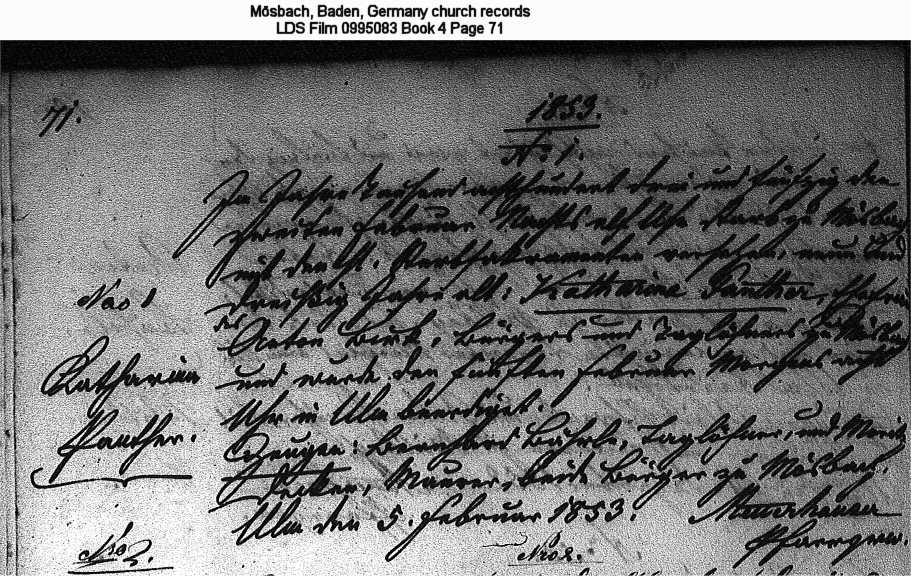 Mösbach, Baden, Germany church records
LDS Film 0995083 Book 4 Page 71
71.
1853.
No 1.
Im Jahre Tausend achthundert drei und fünfzig den
zweiten Februar Nachts elf Uhr starb zu Mösbach
mit den hl. Sterbsakramenten versehen, neun und
dreißig Jahre alt: Katharina Panther, Ehefrau
des
Anton Birk, Bürgers und Taglöhners zu Mösbach
und wurde den fünften Februar Morgens acht
Uhr in Ulm beerdiget.
Zeugen: Bernhard Bährle, Taglöhner, und Moritz
Decker, Maurer, beide Bürger zu Mösbach.
Ulm den 5. Februar 1853.
Pfarrverw.
Nro 1
Katharina
Panther.
Nro 2.
Nro 2.